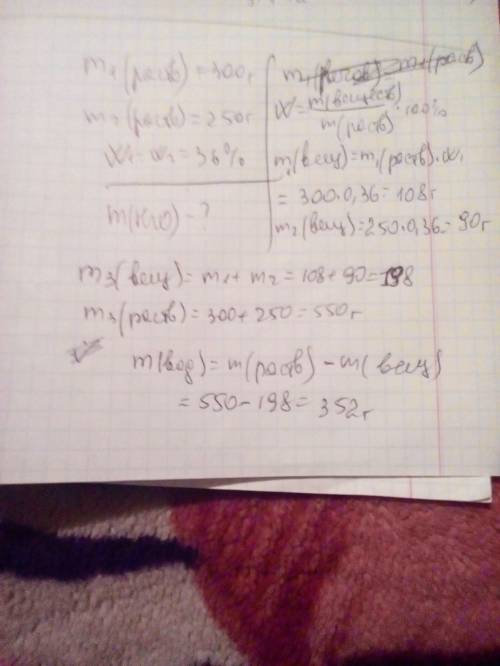 m₁(раств) = 300г
m₂(раств) = 250г
W₁ = W₂ = 36%
m(H₂O) - ?
W = m(веществ) / m(раств) · 100%
m₁(вещ) = m₁(раств) · W₁
= 300 · 0,36 = 108г
m₂(вещ) = 250 · 0,36 = 90г
m₃(вещ) = m₁ + m₂ = 108 + 90 = 198
m₃(раств) = 300 + 250 = 550г
m(вод) = m(раств) - m(вещ)
= 550 - 198 = 352г